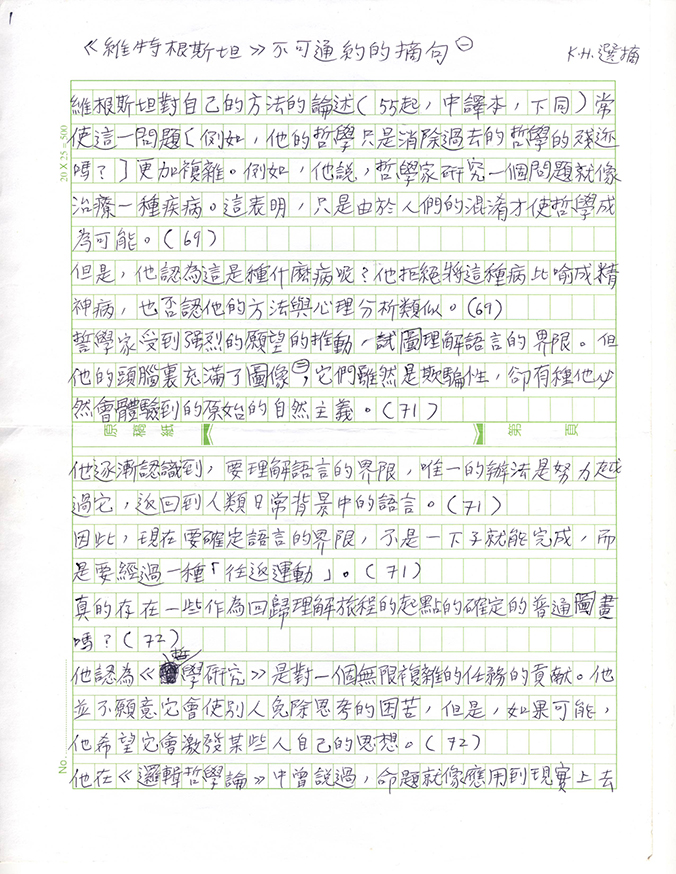 1
《維特根斯坦》不可通約的摘句㊀
K.H.選摘
維根斯坦對自己的方法的論述(55起,中譯本,下同)常
使這一問題〔例如,他的哲學只是消除過去的哲學的殘跡
嗎?〕更加複雜。例如,他説,哲學家研究一個問題就像
治療一種疾病。這表明,只是由於人們的混淆才使哲學成
為可能。(69)
但是,他認為這是種什麼病呢?他拒絕將這種病比喻成精
神病,也否認他的方法與心理分析類似。(69)
哲學家受到强烈的願望的推動,試圖理解語言的界限。但
他的頭腦裏充滿了圖像㊁,它們雖然是欺騙性,卻有種他必
然會體驗到的原始的自然主義。(71)
原稿紙
第 頁
他逐漸認識到,要理解語言的界限,唯一的辦法是努力越
過它,返回到人類日常背景中的語言。(71)
因此,現在要確定語言的界限,不是一下子就能完成,而
是要經過一種「往返運動」。(71)
真的存在一些作為回歸理解旅程的起點的確定的普通圖畫
嗎?(72)
他認為《哲學研究》是對一個無限複雜的任務的貢献。他
並不願意它會使別人免除思考的困苦,但是,如果可能,
他希望它會激發某些人自己的思想。(72)
他在《邏輯哲學論》中曾說過,命題就像應用到現實上去
20 X 25 = 500
No.